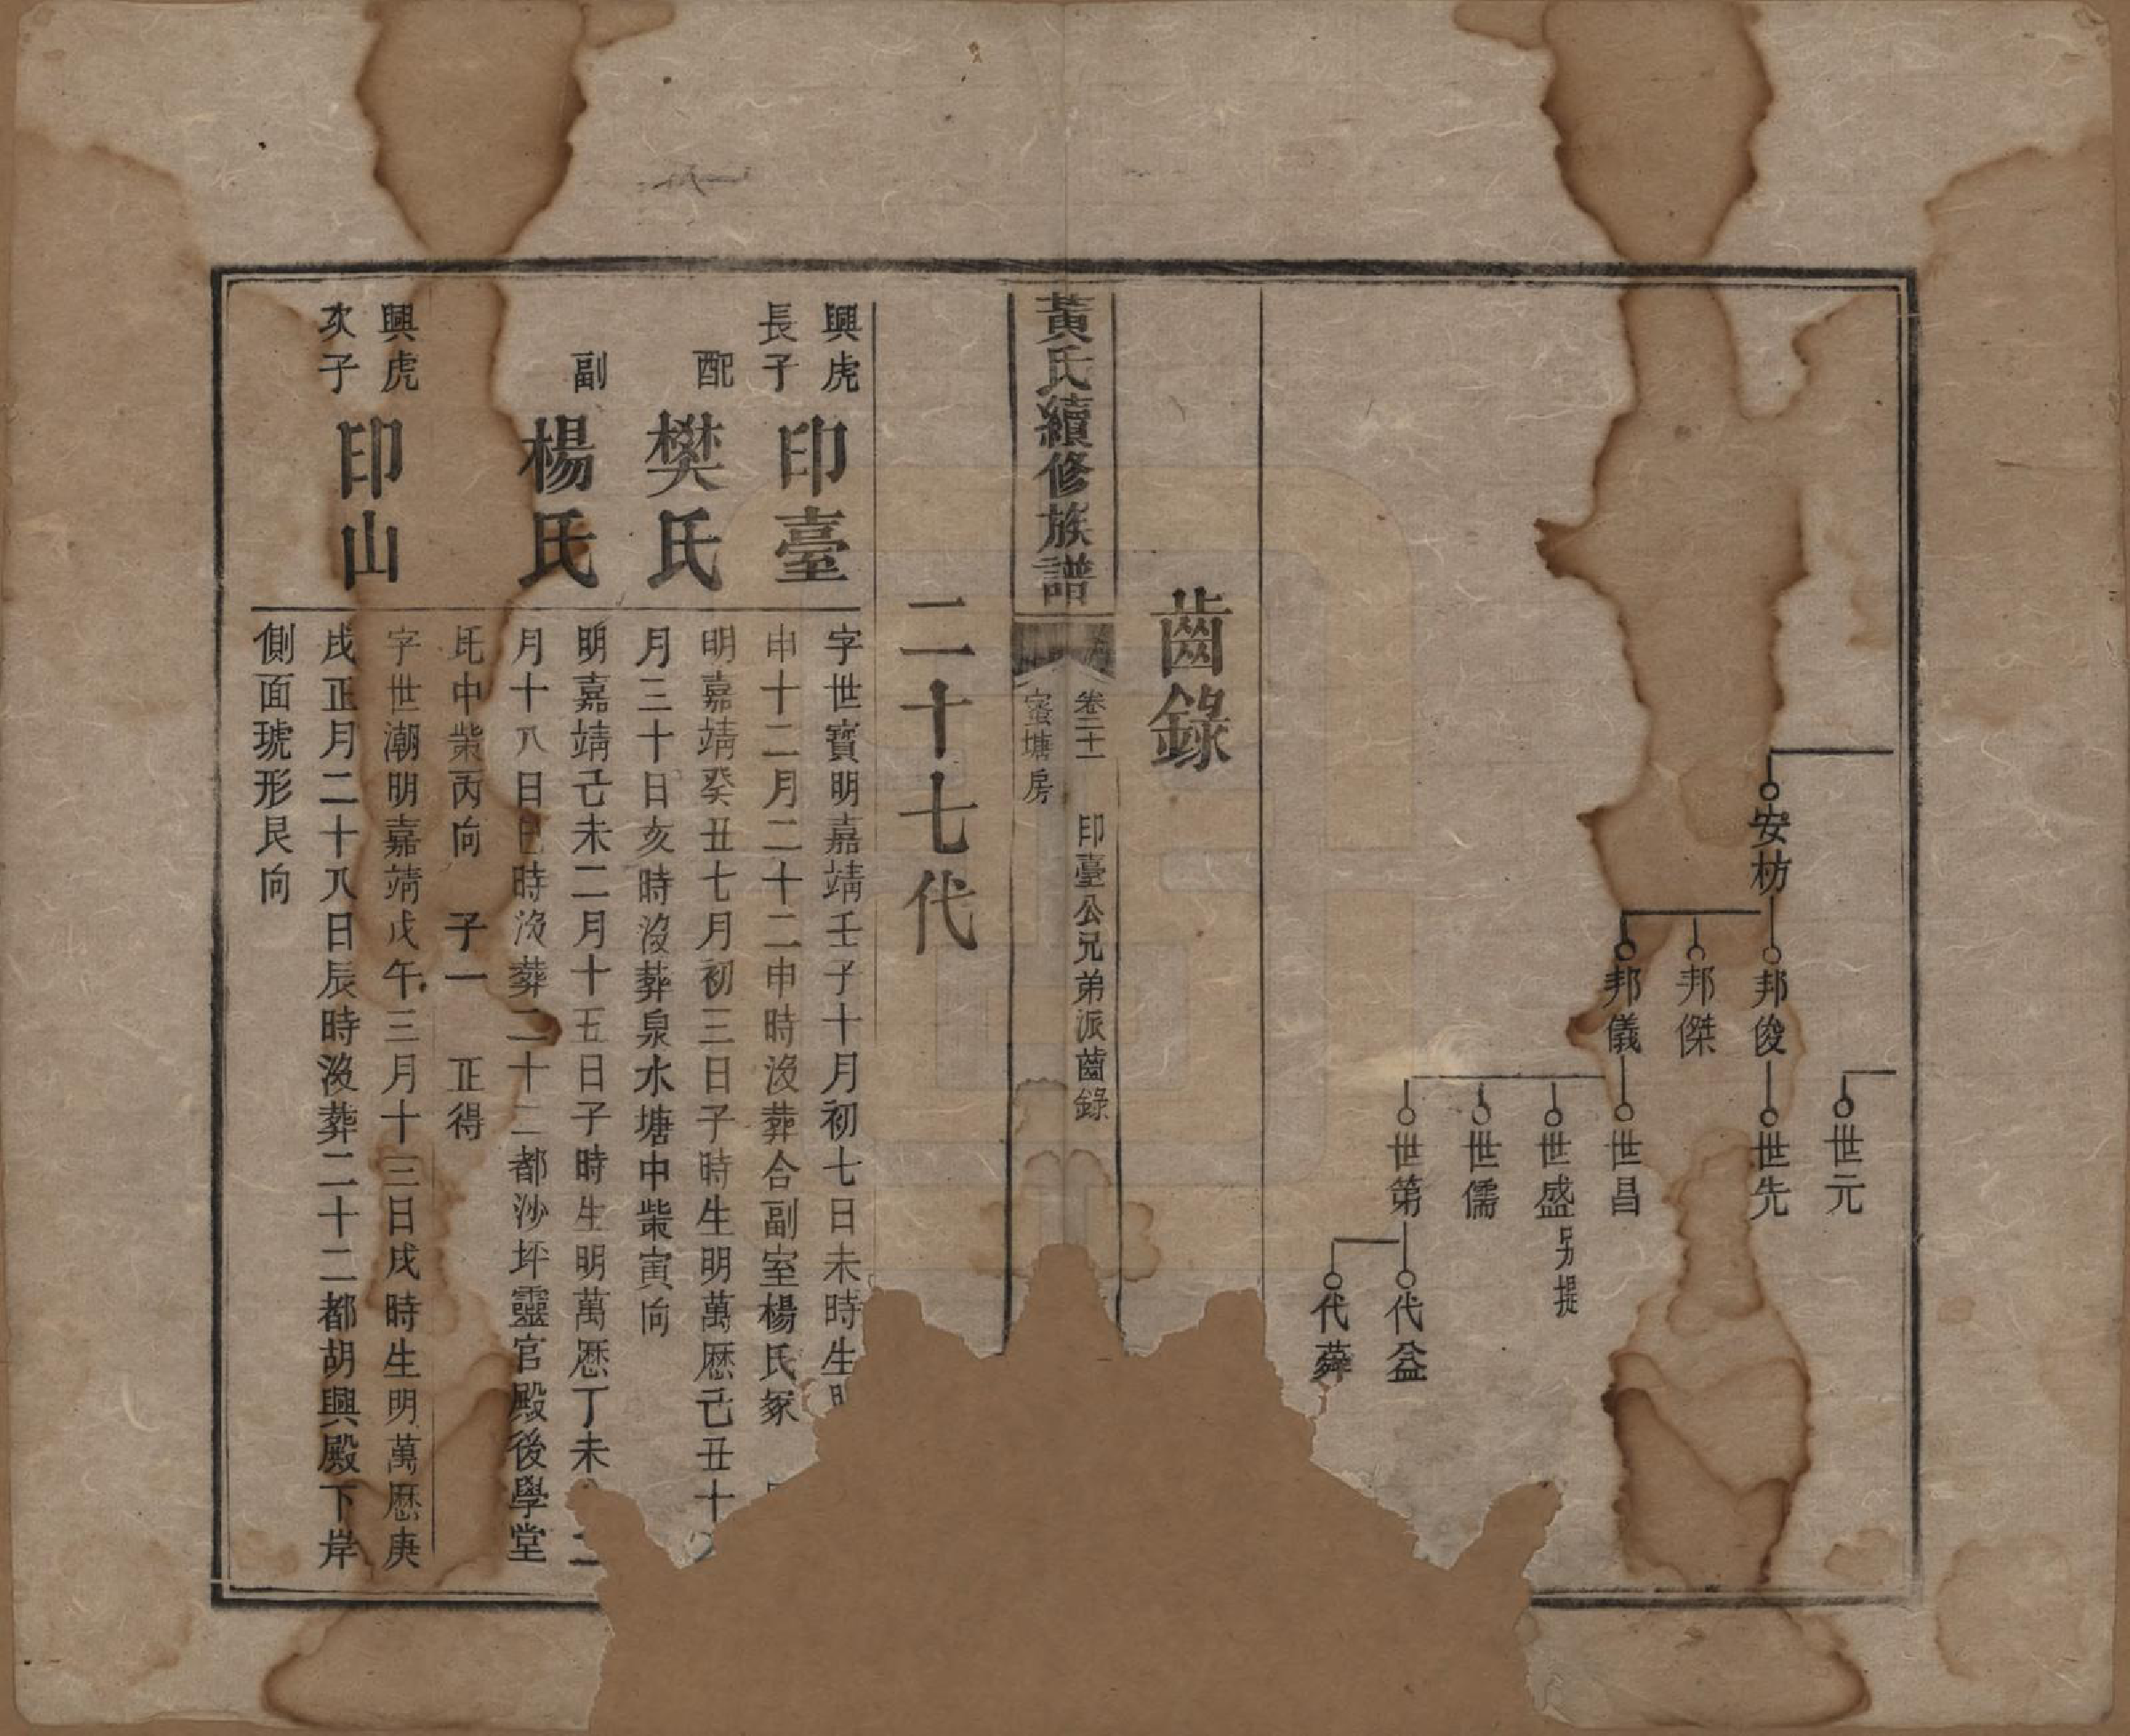 安枋
邦俊
邦傑
邦儀
世元
世先
世昌
世盛
另提
世儒
世第
代益
代蕣
齒錄
黃氏續修族譜
卷二十一
印臺公兄弟派齒錄
蜜塘房
二十七代
興虎
長子
印臺
字世寳明嘉靖壬子十月初七日未時生
申十二月二十二申時沒葬合副室楊氏冢
配
樊氏
明嘉靖癸丑七月初三日子時生明萬厯己丑十
月三十日亥時沒葬泉水塘中柴寅向
副
楊氏
明嘉靖己未二月十五日子時生明萬厯丁未
月十八日巳時沒葬二十二都沙坪靈官殿後學堂
坵中柴丙向 子一 正得
興虎
次子
印山
字世潮明嘉靖戊午三月十三日戌時生明萬厯庚
戌正月二十八日辰時沒葬二十二都胡興殿下岸
側面琥形艮向